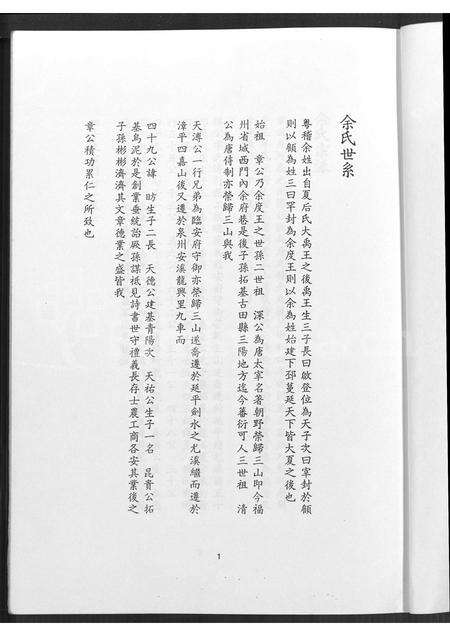 余氏世系
粵稽余姓出自夏后氏大禹王之後禹王生三子長曰啟登位為天子次曰罕封於顧
則以顧為姓三曰罕封為余度王則以余為姓始建下邳蔓延天下皆大夏之後也
始祖 章公乃余度王之世孫二世祖 深公為唐太宰名著朝野榮歸三山即今福
州省城西門內余府巷是後子孫拓基古田縣三陽地方迄今蕃衍可人三世祖 清
公為唐侍制亦榮歸三山與我
天溥公一行兄弟為臨安府守御亦榮歸三山遂喬遷於延平劍水之尤溪繼而遷於
漳平四嘉山後又遷於泉州安溪龍興里九車而
四十九公諱 昉生子二長 天德公建基青陽次 天祐公生子一名 昆貴公拓
基烏泥於是創業垂統詒厥孫謀祗見詩書世守禮義長存士農工商各安其業後之
子孫彬彬濟濟其文章德業之盛皆我
章公積功累仁之所致也
1